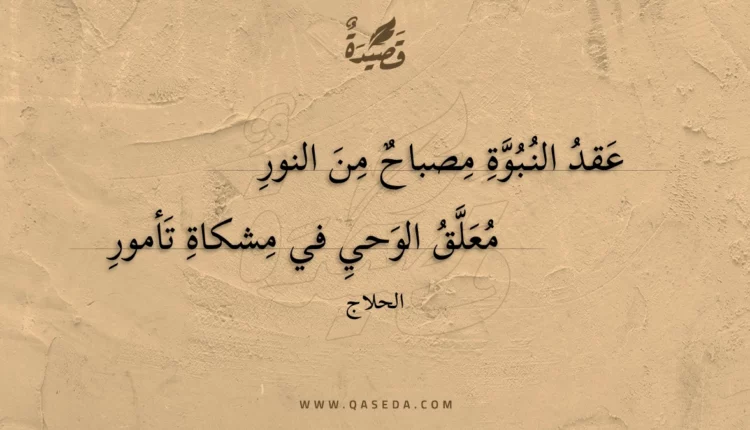 قَصِيدَةٌ
عَقدُ النُبُوَّةِ مِصباحٌ مِنَ النورِ
مُعَلَّقُ الوَحيِ في مِشكاةِ تَأمورِ
الحلاج
WWW.QASEDA.COM